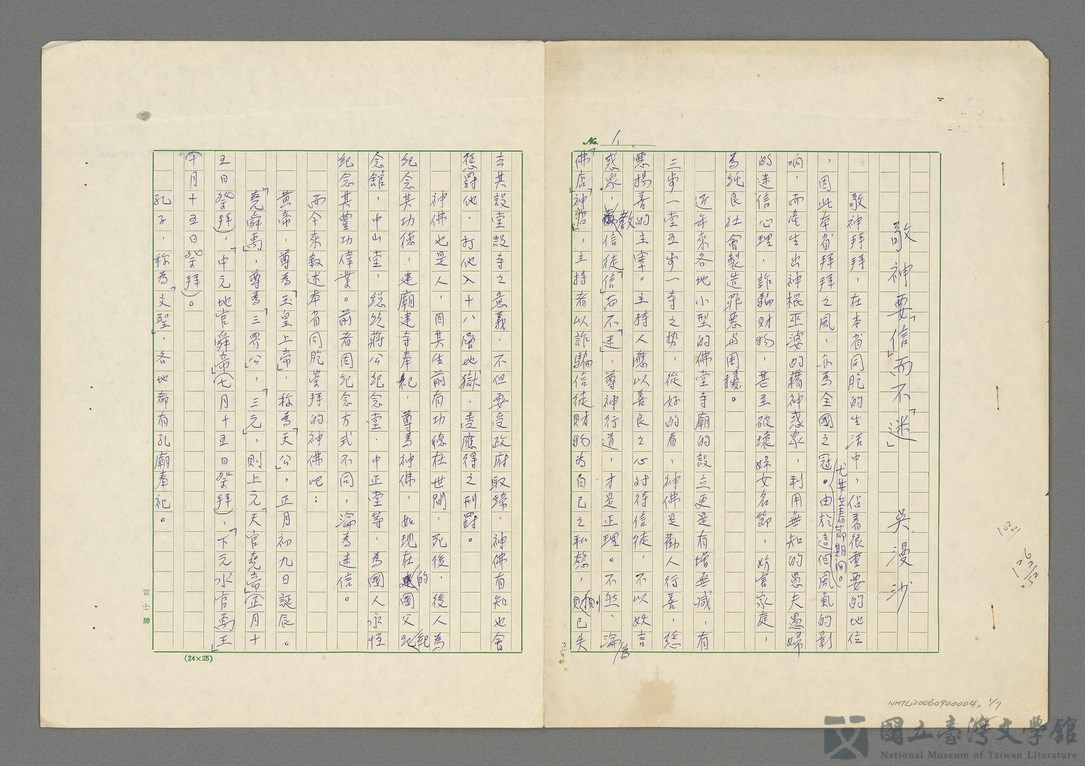 敬神要「信」而不「迷」 吳漫沙
敬神拜拜，在本省同胞的生活中，佔著很重要的地位
，因此本省拜拜之風，亦為全國之冠。尤其在春節期間。由於這個風氣的影
响，而產生出神棍巫婆的藉神惑衆，利用無知的愚夫愚婦
的迷信心理，詐騙財物，甚至破壞婦女名節，妨害家庭，
為純良社會製造罪惡与困擾。
近年來各地小型的佛堂寺廟的設立更是有增無減，有
三步一堂五步一寺之勢，從好的看，神佛是勸人行善，懲
惡揚善的主宰。主持人應以善良之心對待信徒，不以妖言
惑衆，教信徒「信」而不「迷」，尊神行道，才是正理。不然，淪為
「佛店」「神店」，主持者以詐騙信徒財物為自己之私慾，則已失
No. 1.
去其設堂設寺之意義，不但要受政府取締，神佛有知也會
懲罰他，打他入十八層地獄，受應得之刑罰。
神佛也是人，因其生前有功德在世間，死後，後人為
紀念其功德，建廟建寺奉祀，尊為神佛，如現在的國父紀
念館，中山堂，總統蔣公紀念堂．中正堂等，為國人永恆
紀念其豐功偉業。前者因紀念方式不同，淪為迷信。
而今來敘述本省同胞崇拜的神佛吧：
黃帝，尊為「玉皇上帝」，称為「天公」，正月初九日誕辰。
「堯舜禹」，尊為「三界公」，「三元」，則上元「天官堯帝」（正月十
五日祭拜），「中元地官舜帝」（七月十五日祭拜），「下元水官禹王」
（十月十五日祭拜）。
孔子，称為「文聖」，各地都有孔廟奉祀。
富士牌
(24×25)
NMTL20060900004, 1/7
國立臺灣文學館
National Museum of Taiwan Literature